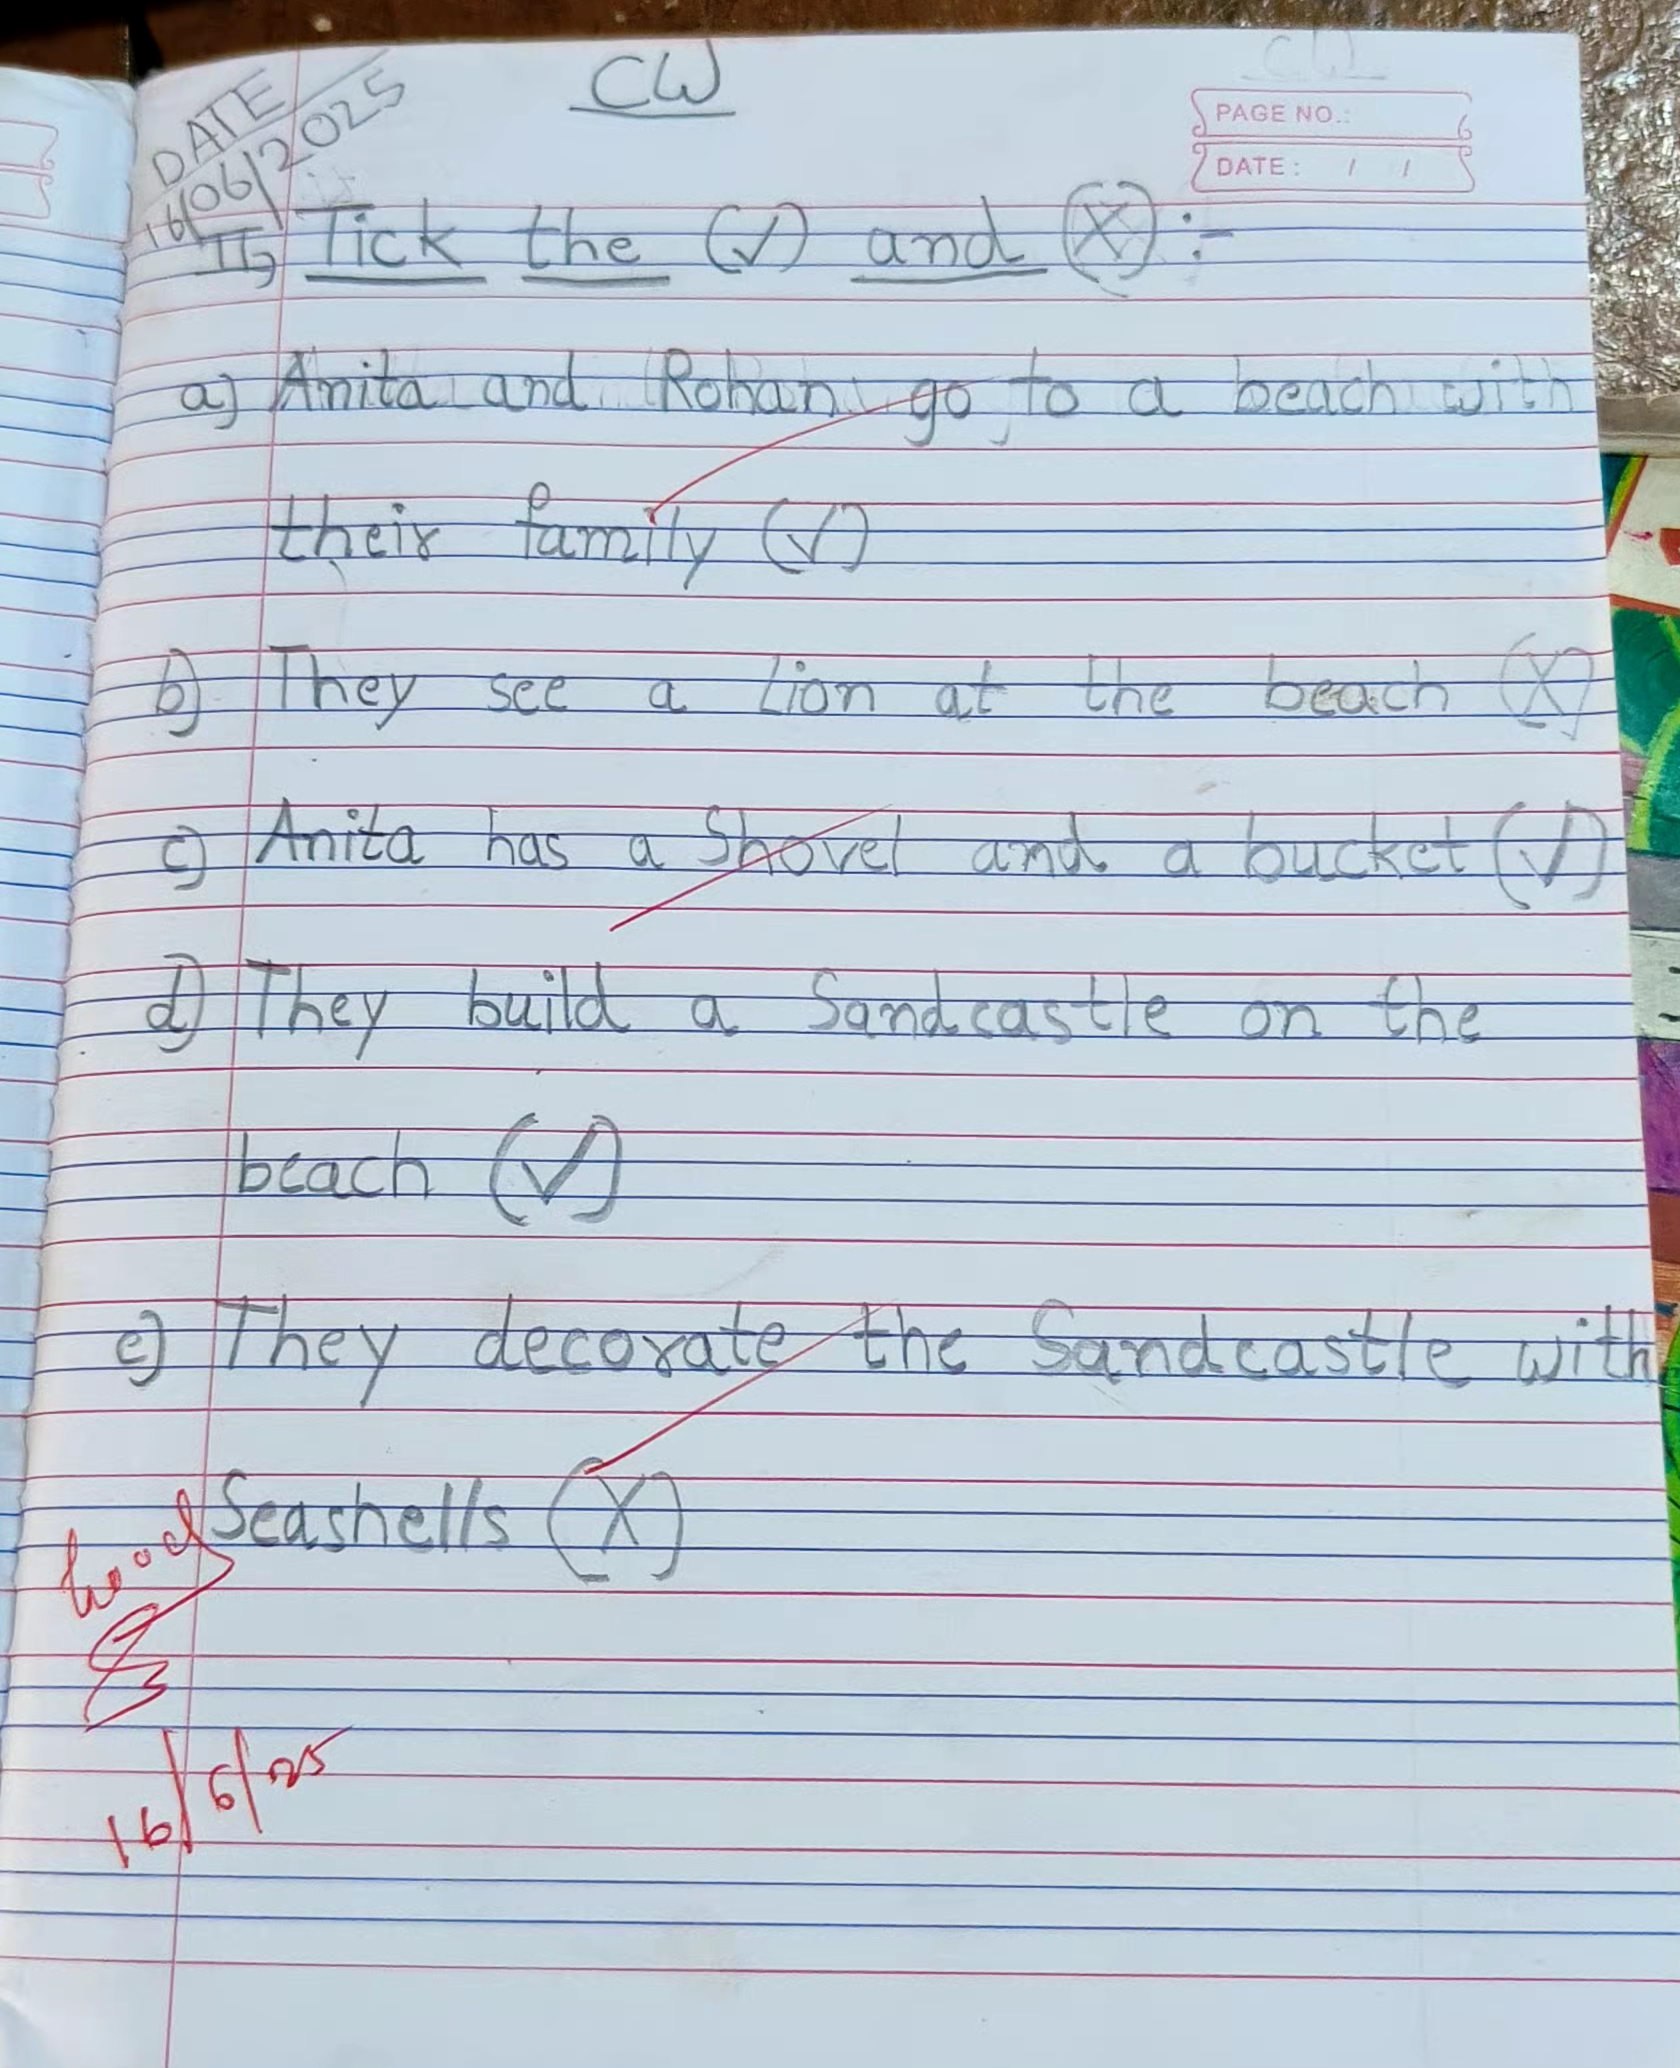 CW
DATE
16/06/2025
PAGE NO.:
DATE: / /
II) Tick the (✓) and (X) :-
a) Anita and Rohan go to a beach with
their family (✓)
b) They see a Lion at the beach (X)
c) Anita has a Shovel and a bucket (✓)
d) They build a Sandcastle on the
beach (✓)
e) They decorate the Sandcastle with
Seashells (X)
Good
16/6/25